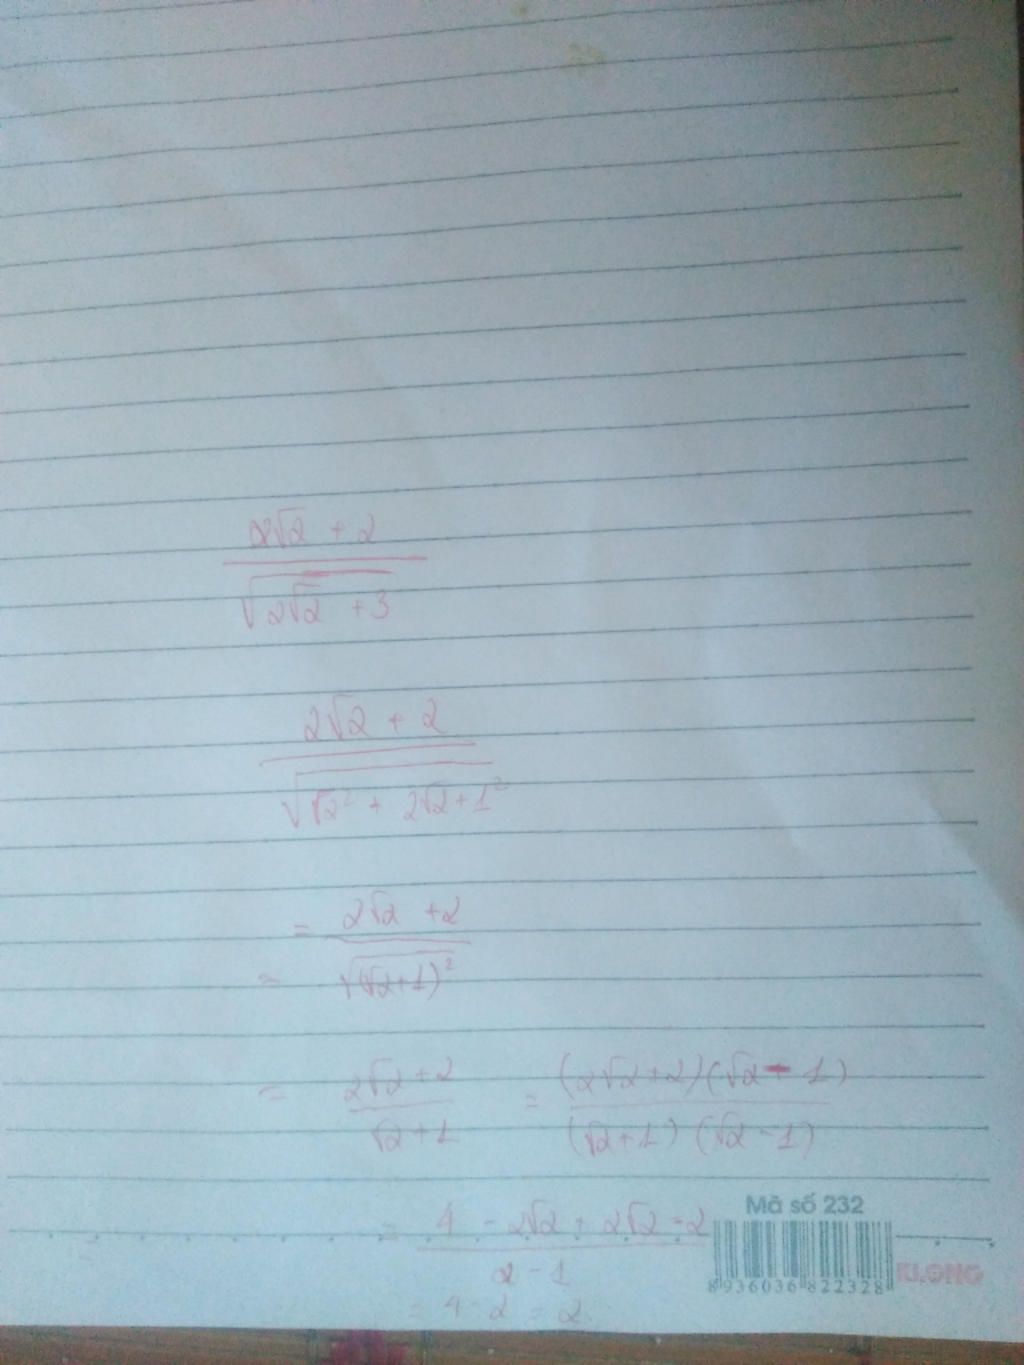 2√2 + 2
√(2√2 + 3)
2√2 + 2
√(√2² + 2√2 + 1²)
= 2√2 + 2
= √(√2+1)²
= 2√2+2 = (2√2+2)(√2-1)
√2+1 (√2+1) (√2-1)
= 4 - 2√2 + 2√2 - 2
2 - 1
= 4 - 2 = 2
Mã số 232
8 936036 822328
KLONG